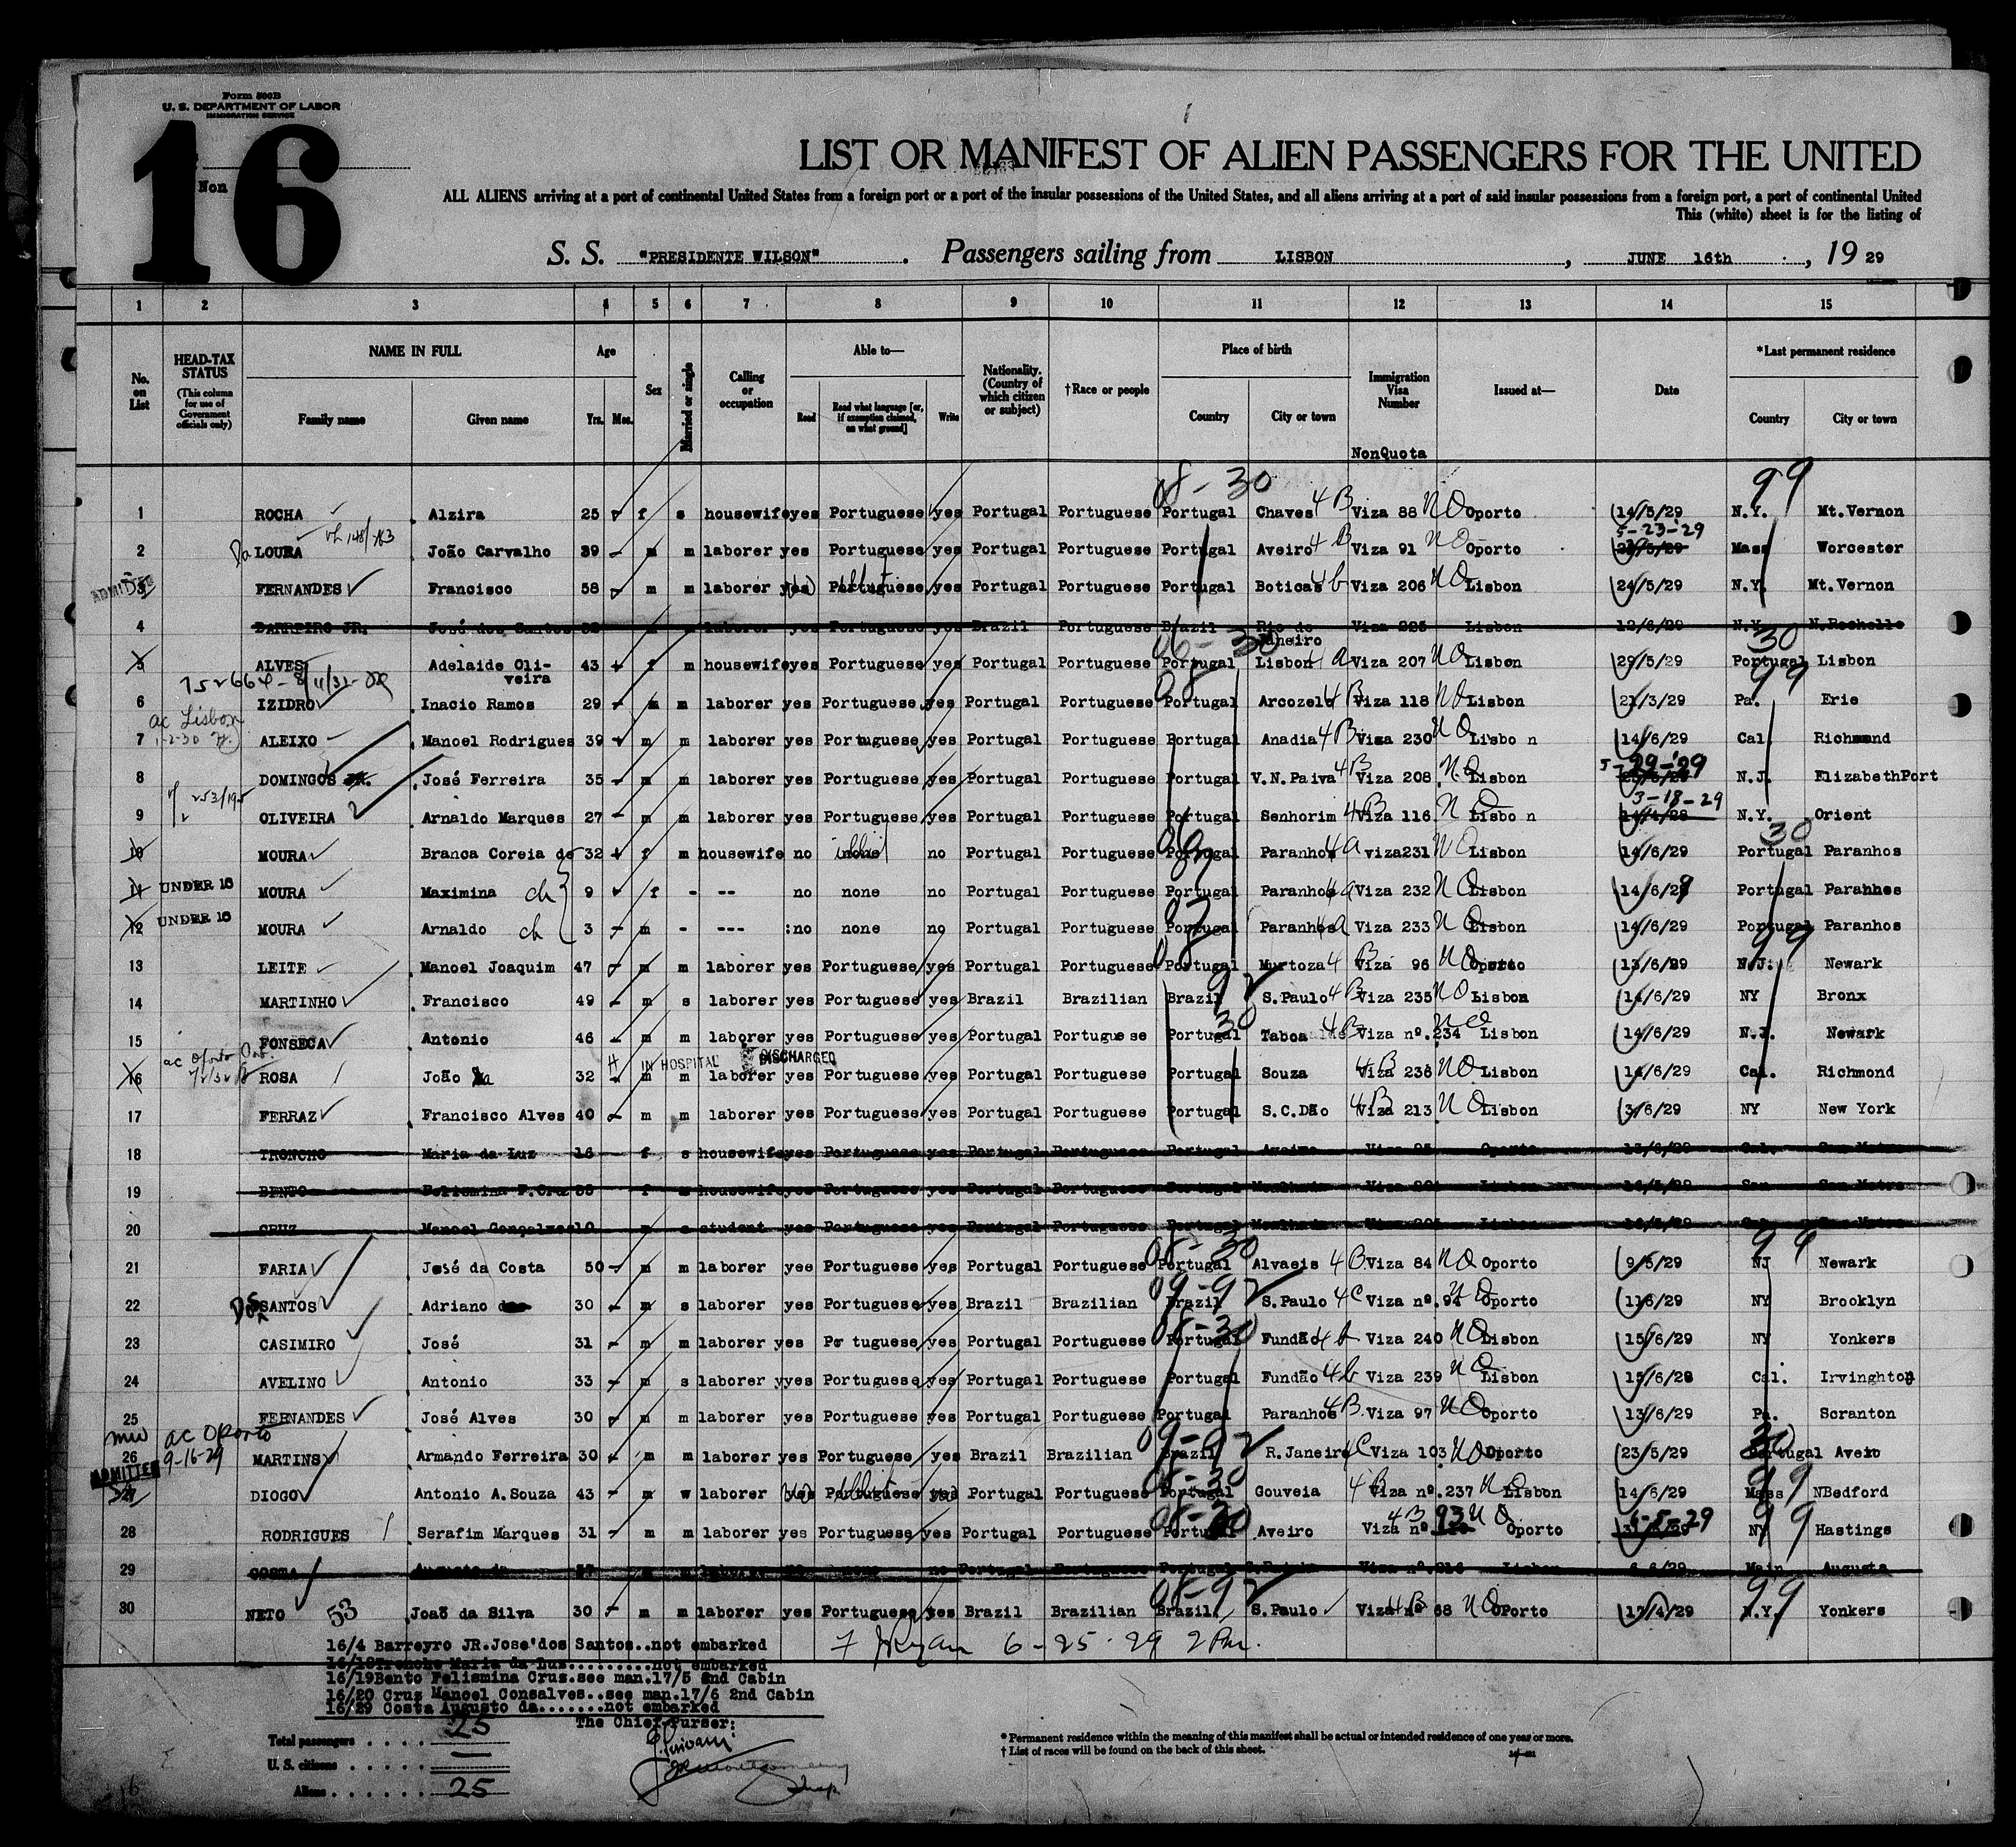 Form 500B
U. S. DEPARTMENT OF LABOR
IMMIGRATION SERVICE
16
Non
LIST OR MANIFEST OF ALIEN PASSENGERS FOR THE UNITED
ALL ALIENS arriving at a port of continental United States from a foreign port or a port of the insular possessions of the United States, and all aliens arriving at a port of said insular possessions from a foreign port, a port of continental United
This (white) sheet is for the listing of
S. S. "PRESIDENTE WILSON" . Passengers sailing from LISBON , JUNE 16th , 19 29
1 2 3 4 5 6 7 8 9 10 11 12 13 14 15
No. on List
HEAD-TAX STATUS (This column for use of Government officials only)
NAME IN FULL Family name Given name
Age Yrs. Mos.
Sex
Married or single
Calling or occupation
Able to— Read Read what language [or, if exemption claimed, on what ground] Write
Nationality. (Country of which citizen or subject)
†Race or people
Place of birth Country City or town
Immigration Visa Number NonQuota
Issued at—
Date
*Last permanent residence Country City or town
08-30 99
1 ROCHA Alzira 25 f s housewife yes Portuguese yes Portugal Portuguese Portugal Chaves 4B Viza 88 NO Oporto 14/5/29 N.Y. Mt.Vernon
5-23-'29
2 Da LOURA João Carvalho 39 m m laborer yes Portuguese yes Portugal Portuguese Portugal Aveiro 4B Viza 91 NO Oporto Mass Worcester
ADMITTED
3 FERNANDES Francisco 58 m m laborer yes Portuguese yes Portugal Portuguese Portugal Boticas 4b Viza 206 NO Lisbon 24/5/29 N.Y. Mt.Vernon
4 BARREIRO JR. José dos Santos laborer yes Portuguese yes Brazil Portuguese Brazil Rio de Janeiro Viza 225 Lisbon 12/6/29 N.Y. N.Rochelle
06-30 30
5 ALVES Adelaide Oliveira 43 f m housewife yes Portuguese yes Portugal Portuguese Portugal Lisbon Viza 207 NO Lisbon 29/5/29 Portugal Lisbon
08 99
6 IZIDRO Inacio Ramos 29 m m laborer yes Portuguese yes Portugal Portuguese Portugal Arcozelo 4B Viza 118 NO Lisbon 21/3/29 Pa. Erie
ac Lisbon
7 ALEIXO Manoel Rodrigues 39 m m laborer yes Portuguese yes Portugal Portuguese Portugal Anadia 4B Visa 230 NO Lisbo n 14/6/29 Cal. Richmond
5-29-'29
8 DOMINGOS José Ferreira 35 m m laborer yes Portuguese yes Portugal Portuguese Portugal V.N.Paiva 4B Viza 208 NO Lisbon N.J. ElizabethPort
253/195
3-18-29
9 OLIVEIRA Arnaldo Marques 27 m m laborer yes Portuguese yes Portugal Portuguese Portugal Senhorim 4B Viza 116 NO Lisbo n N.Y. Orient
30
10 MOURA Branca Coreia de 32 f m housewife no no Portugal Portuguese Portugal Paranhos 4a viza231 NO Lisbon 14/6/29 Portugal Paranhos
11 UNDER 16 MOURA Maximina ch 9 f - -- no none no Portugal Portuguese Portugal Paranhos 4a Viza 232 NO Lisbon 14/6/29 Portugal Paranhos
12 UNDER 16 MOURA Arnaldo ch 3 m - --- :no none no Portugal Portuguese Portugal Paranhos 4a Viza 233 NO Lisbon 14/6/29 Portugal Paranhos
99
13 LEITE Manoel Joaquim 47 m m laborer yes Portuguese yes Portugal Portuguese Portugal Murtoza 4B Viza 96 NO Oporto 13/6/29 N.J. Newark
14 MARTINHO Francisco 49 m s laborer yes Portuguese yes Brazil Brazilian Brazil S.Paulo 4B Viza 235 NO Lisbon 14/6/29 NY Bronx
30
15 FONSECA Antonio 46 m m laborer yes Portuguese yes Portugal Portuguese Portugal Taboa 4B Viza nº.234 NO Lisbon 14/6/29 N.J. Newark
ac Oporto IN HOSPITAL DISCHARGED
16 ROSA João 32 m m laborer yes Portuguese yes Portugal Portuguese Portugal Souza 4B Viza 238 NO Lisbon 14/6/29 Cal. Richmond
17 FERRAZ Francisco Alves 40 m m laborer yes Portuguese yes Portugal Portuguese Portugal S.C.Dão 4B Viza 213 NO Lisbon 3/6/29 NY New York
18 TRONCHO Maria da Luz 16 f s housewife yes Portuguese yes Portugal Portuguese Portugal Aveiro Viza 95 Oporto 13/6/29 Cal. San Mateo
19 BENTO Felismina F.Cruz f housewife yes Portuguese yes Portugal Portuguese Portugal Lisbon
20 CRUZ Manoel Gonçalves 10 m s student yes Portuguese yes Portugal Portuguese Portugal Lisbon
08-30 99
21 FARIA José da Costa 50 m m laborer yes Portuguese yes Portugal Portuguese Portugal Alvaeis 4B Viza 84 NO Oporto 9/5/29 NJ Newark
09-92
22 DOS SANTOS Adriano 30 m s laborer yes Portuguese yes Brazil Brazilian Brazil S.Paulo 4C Viza nº.94 NO Oporto 11/6/29 NY Brooklyn
08-30
23 CASIMIRO José 31 m m laborer yes Portuguese yes Portugal Portuguese Portugal Fundão 4b Viza 240 NO Lisbon 15/6/29 NY Yonkers
24 AVELINO Antonio 33 m s laborer yyes Portuguese yes Portugal Portuguese Portugal Fundão 4b Viza 239 NO Lisbon 15/6/29 Cal. Irvinghton
25 FERNANDES José Alves 30 m m laborer yes Portuguese yes Portugal Portuguese Portugal Paranhos 4B Viza 97 NO Oporto 13/6/29 Pa. Scranton
ac Oporto 9-16-29
09-92 30
26 MARTINS Armando Ferreira 30 m m laborer yes Portuguese yes Brazil Brazilian Brazil R.Janeiro 4C Viza 103 NO Oporto 23/5/29 Portugal Aveiro
ADMITTED
08-30 99
27 DIOGO Antonio A.Souza 43 m w laborer yes Portuguese yes Portugal Portuguese Portugal Gouveia 4B Viza nº.237 NO Lisbon 14/6/29 Mass NBedford
08-30 6-5-29
28 RODRIGUES Serafim Marques 31 m m laborer yes Portuguese yes Portugal Portuguese Portugal Aveiro 4B Viza nº 93 NO Oporto NY 99 Hastings
29 COSTA Augusto da laborer no Portugal Portuguese Portugal Viza nº.216 Lisbon 6/6/29 Main Augusta
08-92 99
30 NETO 53 Joaõ da Silva 30 m m laborer yes Portuguese yes Brazil Brazilian Brazil S.Paulo 4B Viza nº 68 NO OPorto 17/4/29 N.Y. Yonkers
16/4 Barreyro JR.Jose'dos Santos..not embarked
6-25-29 2 Pm.
16/18Troncho Maria da Luz.........not embarked
16/19Bento Felismina Cruz.see man.17/5 2nd Cabin
16/20 Cruz Manoel Consalves..see man.17/6 2nd Cabin
16/29 Costa Augusto da.......not embarked
The Chief Purser:
Total passengers . . . . 25
U. S. citizens . . . . . —
Aliens . . . . . . 25
* Permanent residence within the meaning of this manifest shall be actual or intended residence of one year or more.
† List of races will be found on the back of this sheet.